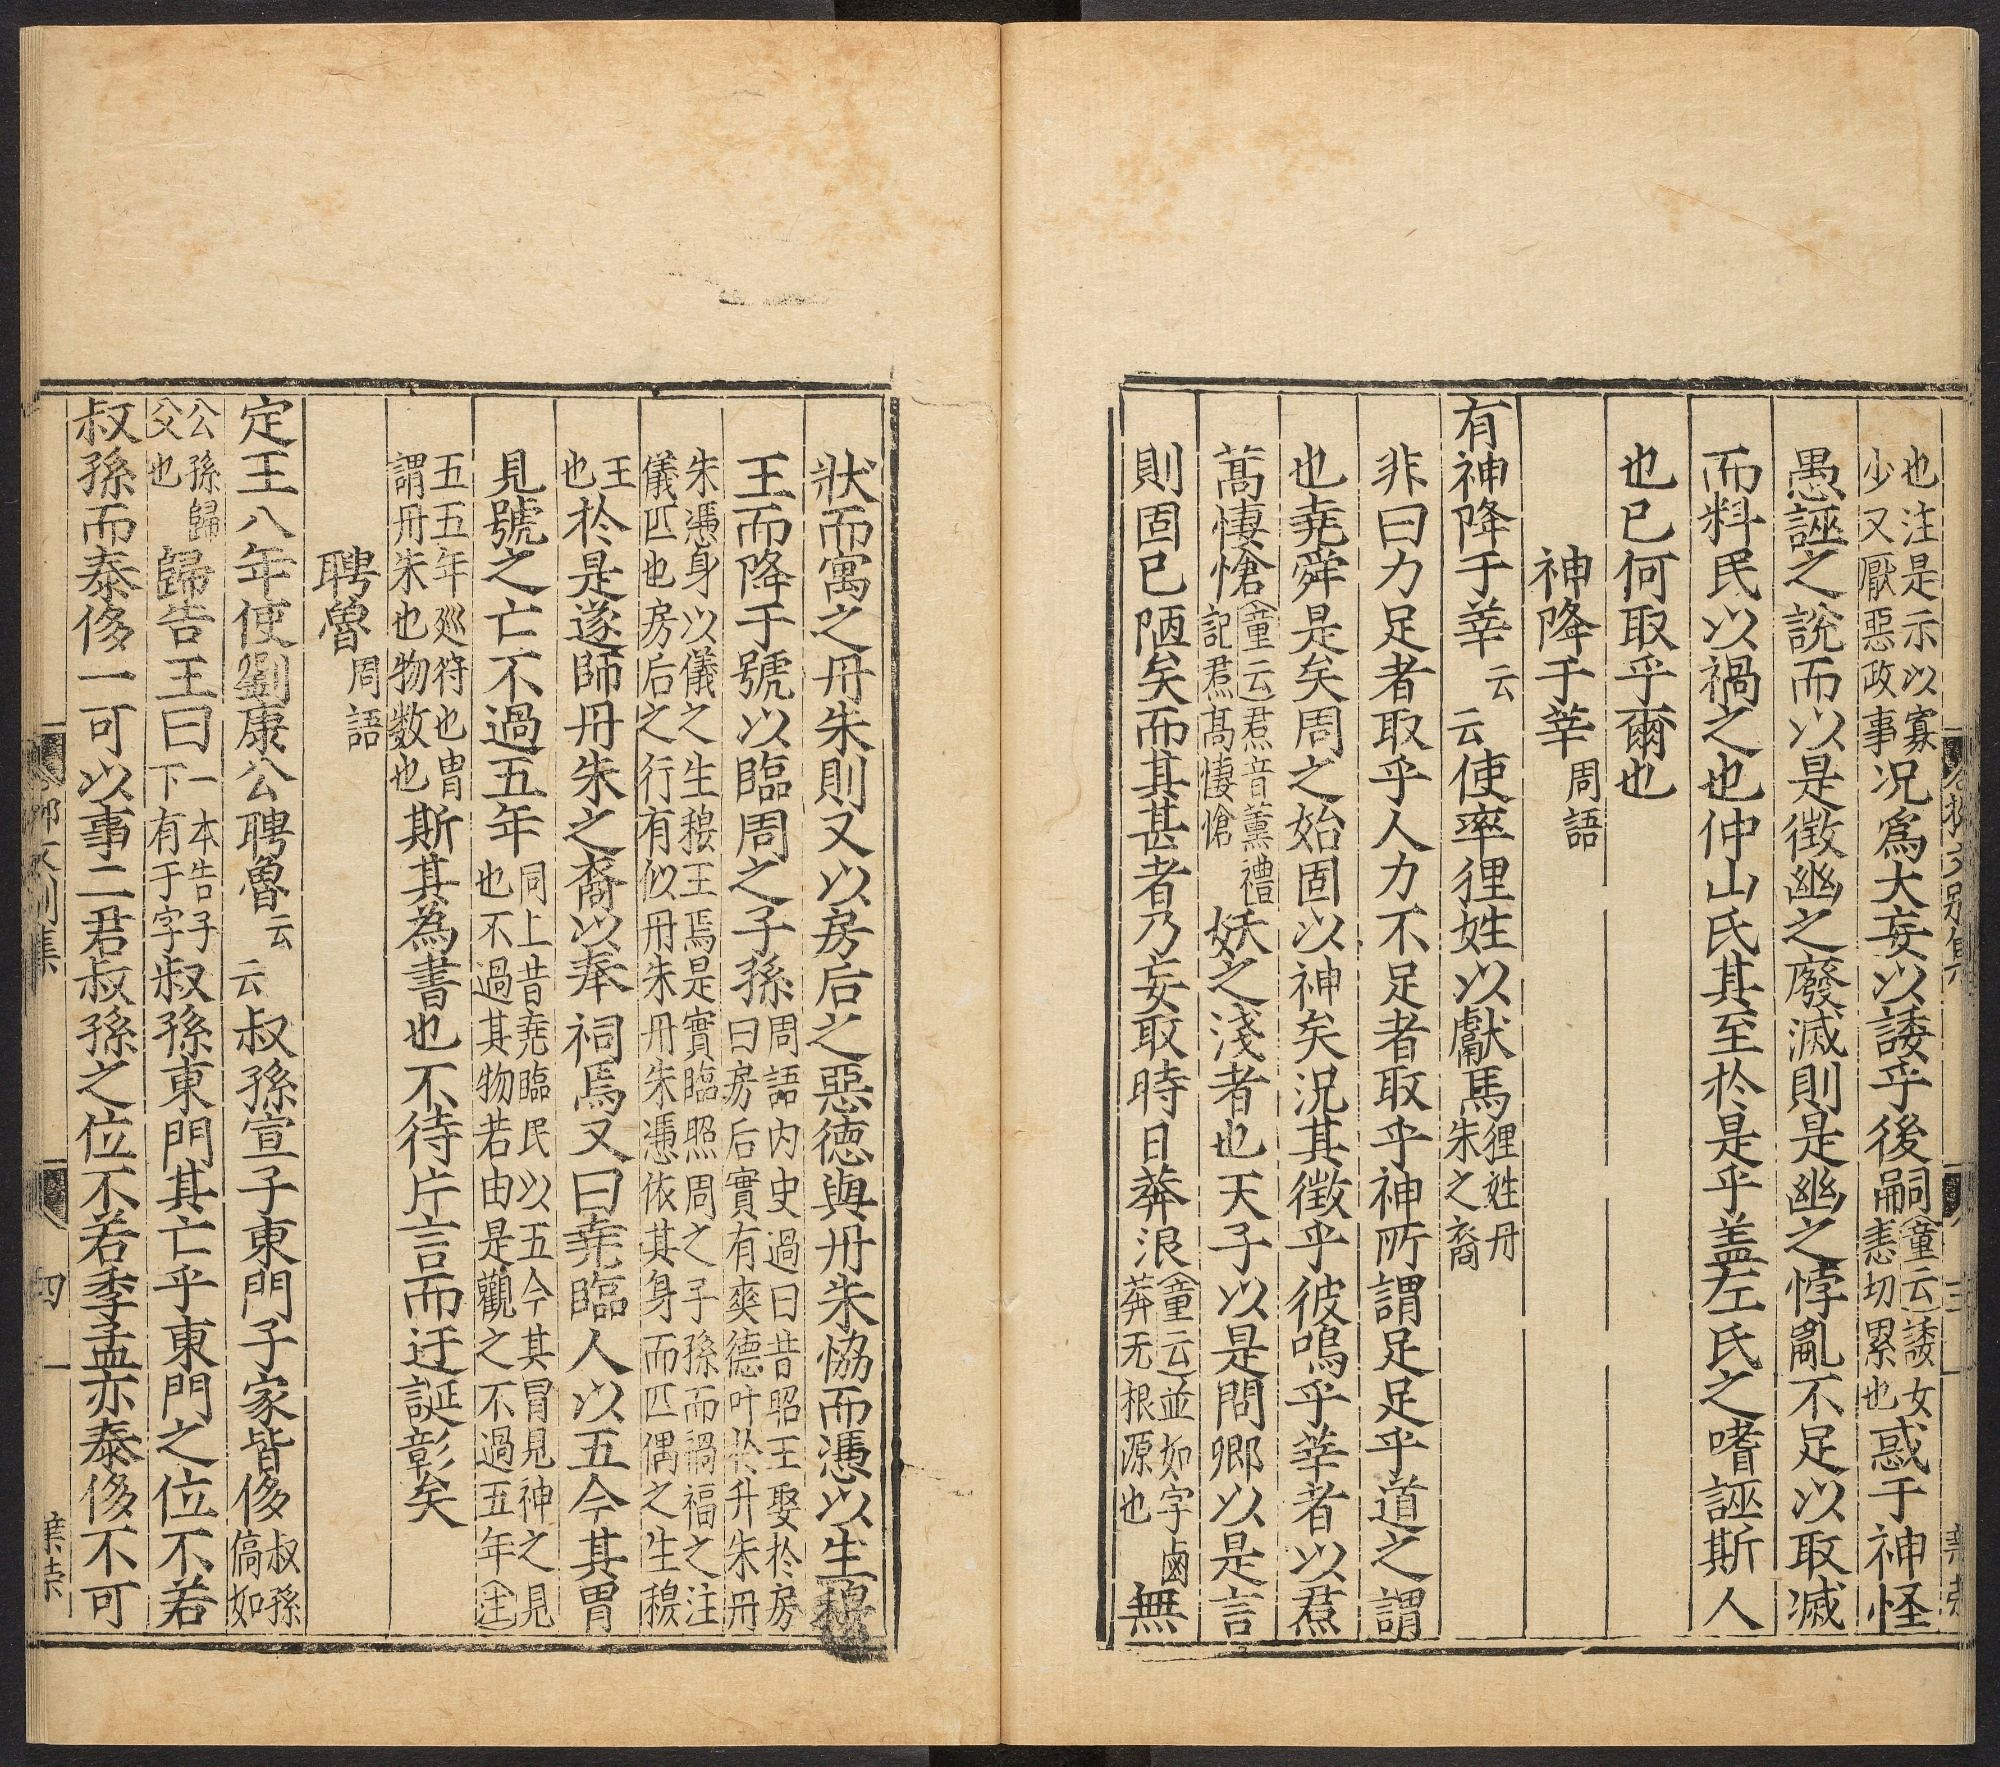 也注是示以寡少又厭惡政事况爲大妄以諉乎後嗣童云諉女恚切累也惑于神怪
愚誣之說而以是徵幽之廢滅則是幽之悖亂不足以取滅
而料民以禍之也仲山氏其至於是乎盖左氏之嗜誣斯人
也已何取乎爾也
神降于莘周語
有神降于莘云云使率狸姓以獻焉狸姓丹朱之裔
非曰力足者取乎人力不足者取乎神所謂足足乎道之謂
也堯舜是矣周之始固以神矣况其徵乎彼鳴乎莘者以焄
蒿悽愴童云焄音薰禮記焄蒿悽愴妖之淺者也天子以是問卿以是言
則固已陋矣而其甚者乃妄取時日莽浪童云並如字鹵莽无根源也無
狀而寓之丹朱則又以房后之惡德與丹朱恊而憑以生穆
王而降于號以臨周之子孫周語内史過曰昔昭王娶於房曰房后實有爽德叶於升朱丹
朱憑身以儀之生穆王焉是實臨照周之子孫而禍福之注儀匹也房后之行有似丹朱丹朱憑依其身而匹偶之生穆
王也於是遂師丹朱之裔以奉祠焉又曰堯臨人以五今其冑
見號之亡不過五年同上昔堯臨民以五今其冑見神之見也不過其物若由是觀之不過五年注
五五年廵狩也冑謂丹朱也物数也斯其為書也不待片言而迂誕彰矣
聘魯周語
定王八年使劉康公聘魯云云叔孫宣子東門子家皆侈叔孫僑如
公孫歸父也歸告王曰一本告子下有于字叔孫東門其亡乎東門之位不若
叔孫而泰侈一可以事二君叔孫之位不若季孟亦泰侈不可